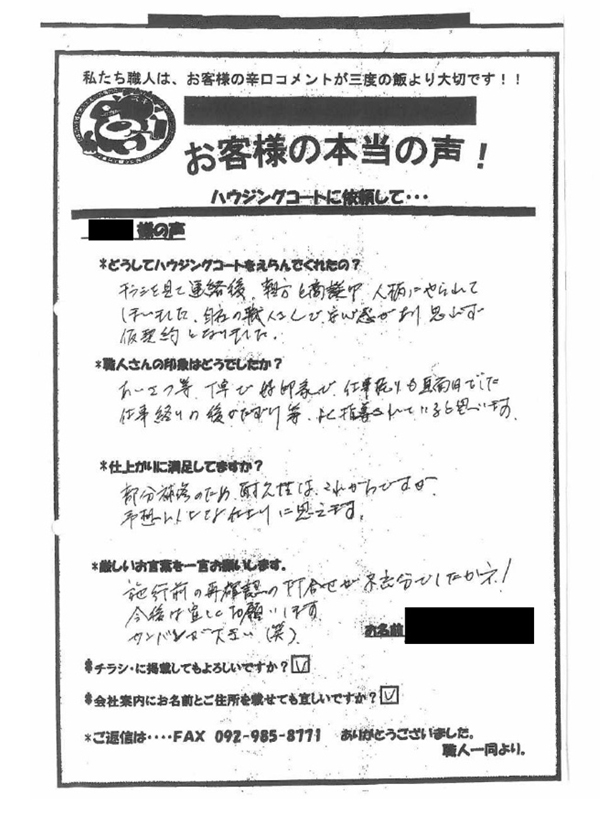 私たち職人は、お客様の辛口コメントが三度の飯より大切です！！
お客様の本当の声！
ハウジングコートに依頼して・・・
様の声
*どうしてハウジングコートをえらんでくれたの？
チラシを見て連絡後、 人柄にやられて
しまいました。自社の職人さんで安心感があり思わず
仮契約となりました。
*職人さんの印象はどうでしたか？
あいさつ等、丁寧で好印象で、仕事振りも真面目でした
仕事終りの後かたずけ等、よく指導されていると思います。
*仕上がりに満足してますか？
部分補修のため、耐久性は、これからですが、
予想以上 仕上りに思えます。
*厳しいお言葉を一言お願いします。
施行前の再確認の打合せが不充分でしたかネ！
今後は宜しくお願いします
下さい（笑）
お名前
*チラシ・に掲載してもよろしいですか？
*会社案内にお名前とご住所を載せても宜しいですか？
*ご返信は・・・・FAX 092-985-8771 ありがとうございました。
職人一同より。